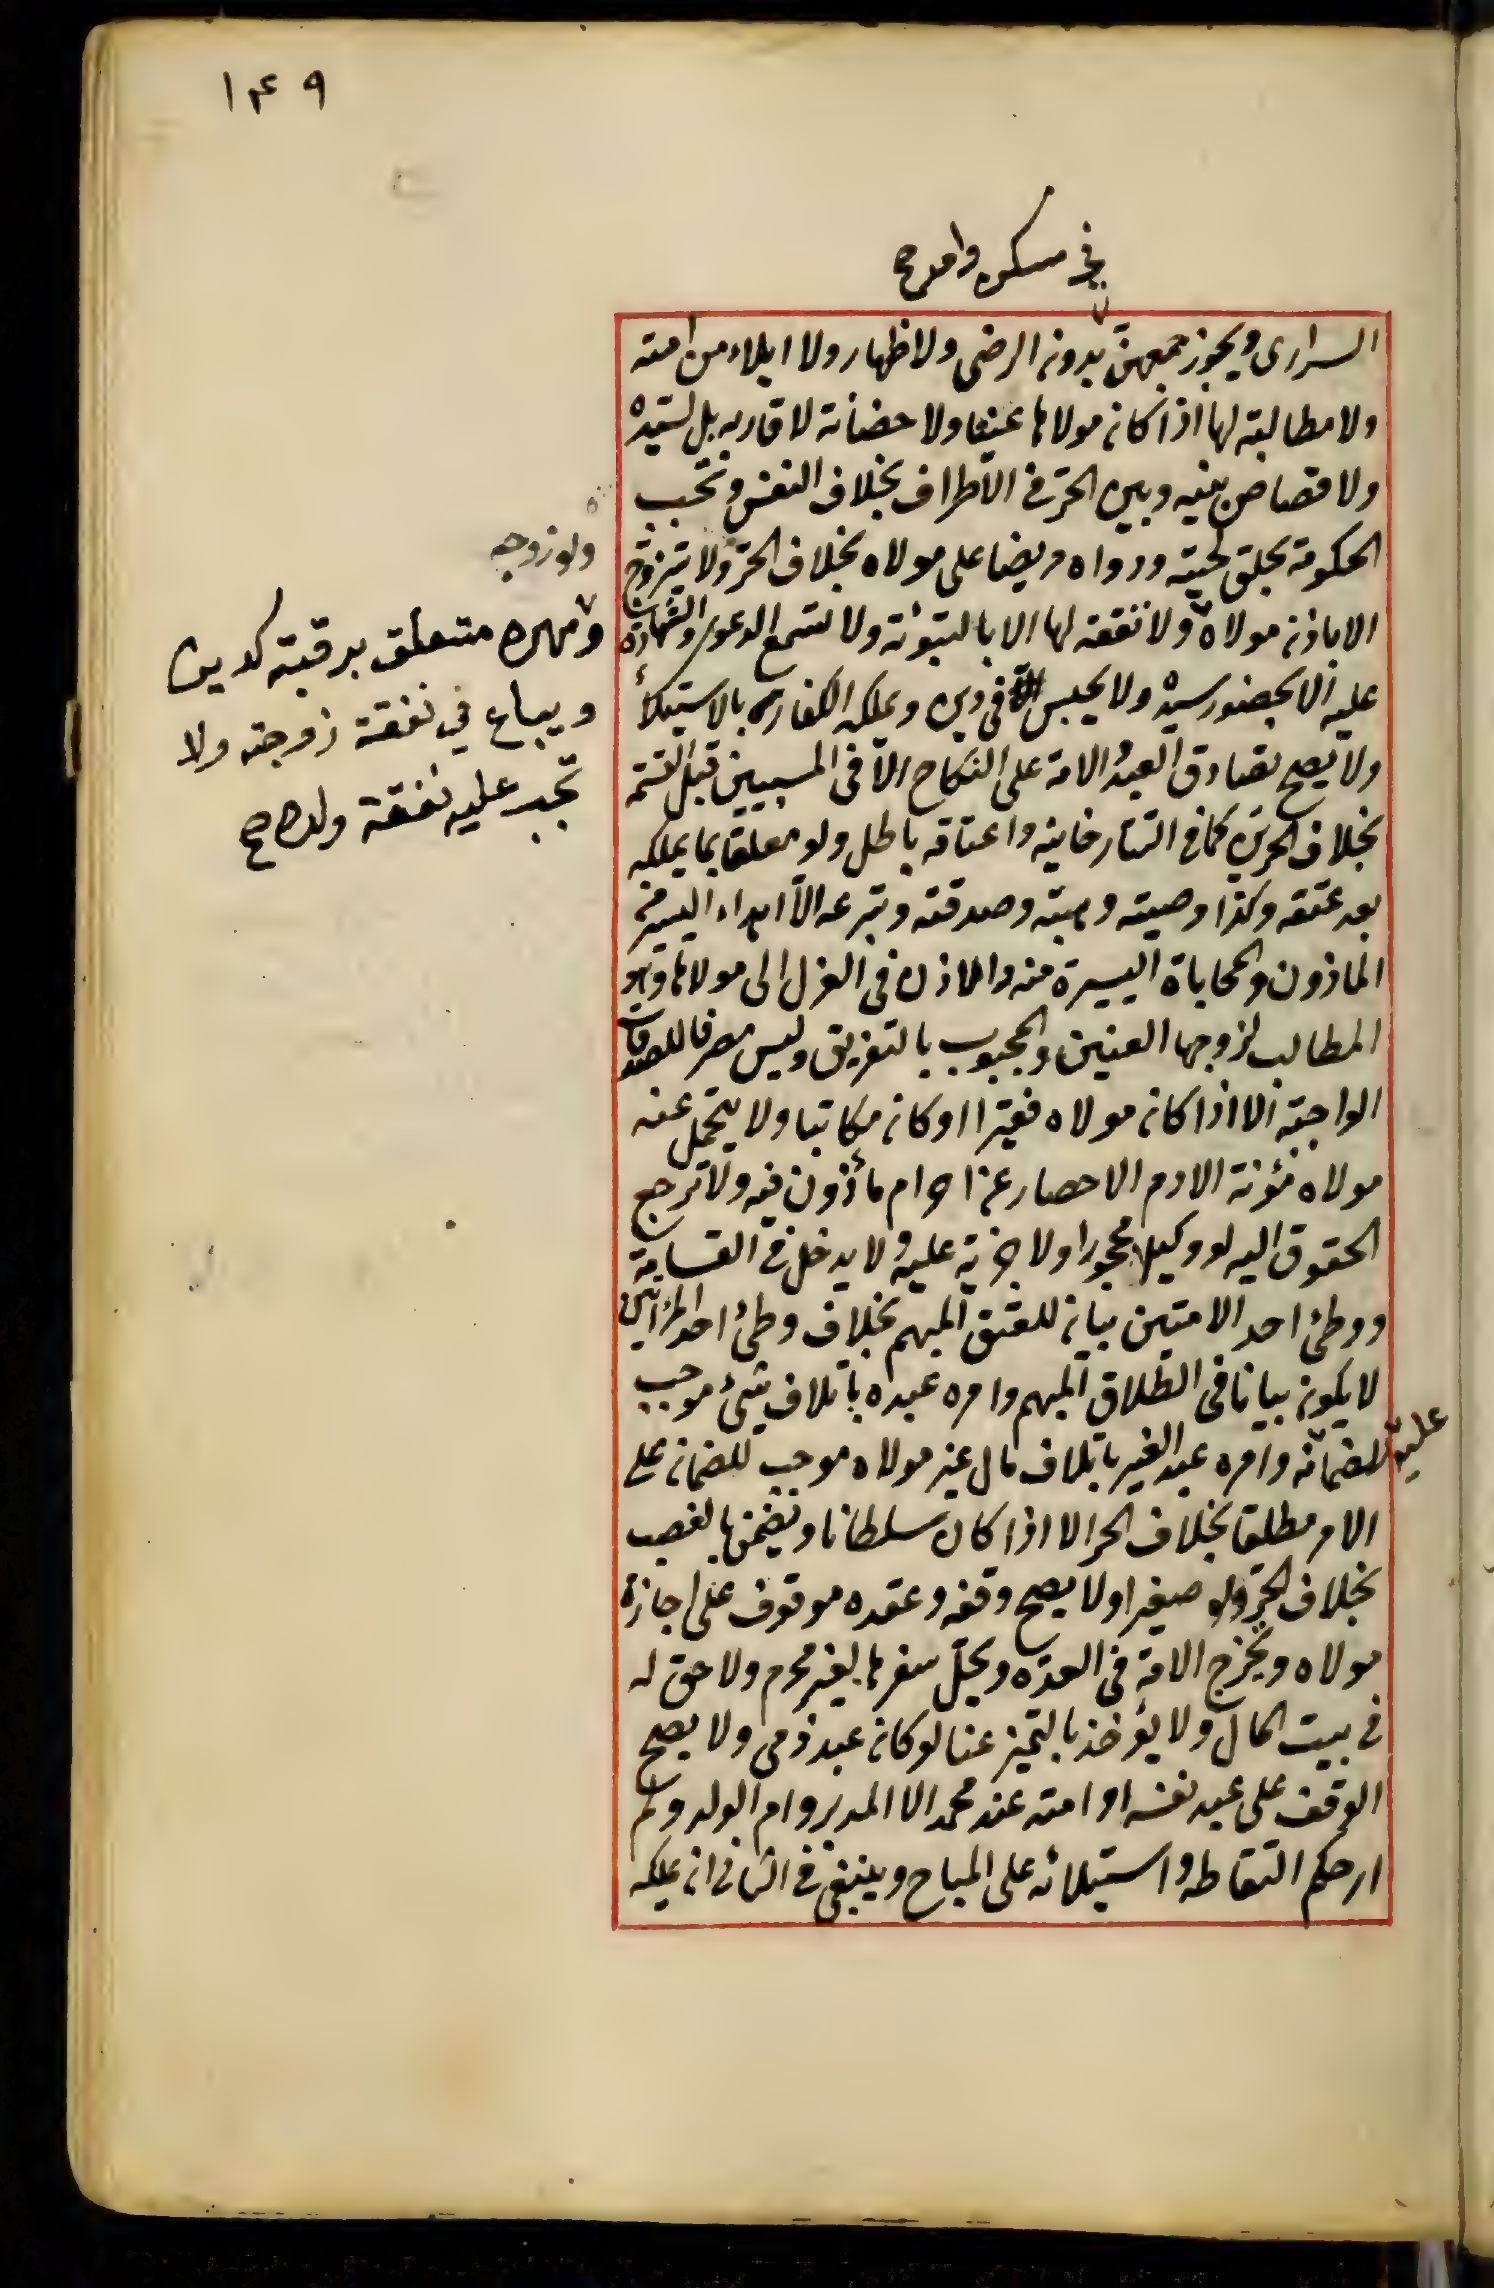 ١٤٩
في مسكن واحد صح
السرارى ويجوز جمعهن بدون الرضى ولا ظهار ولا ايلاء من امته
ولا مطالبة لها اذا كان مولاها عنينا ولا حضانة لاقاربه بل لسيده
ولا قصاص بينه وبين الحر في الاطراف بخلاف النفس وتجب
الحكومة بحلق لحيته ودواه مريضا على مولاه بخلاف الحر ولا يتزوج
الا باذن مولاه ولا نفقة لها الا بالتبوئة ولا تسمع الدعوى والشهادة
عليه الا بحضور سيده ولا يحبس في دين ويملكه الكفار بالاستيلاء
ولا يصح تصادق العبد والامة على النكاح الا في المسبيين قبل القسمة
بخلاف الحرين كما في التتارخانية واعتاقه باطل ولو معلقا بما يملكه
بعد عتقه وكذا وصيته وهبته وصدقته وتبرعه الا اهداء اليسير من
الماذون والمحاباة اليسيرة منه والاذن في العزل الى مولاها وهو
المطالب لزوجها العنين والمجبوب بالتفريق وليس مصرفا للصدقات
الواجبة الا اذا كان مولاه فقيرا او كان مكاتبا ولا يتحمل عنه
مولاه مؤنة الا دم الاحصار عن احرام مأذون فيه ولا ترجع
الحقوق اليه لو وكيلا محجورا ولا جزية عليه ولا يدخل في القسامة
ووطئ احد الامتين بيان للعتق المبهم بخلاف وطئ احد المرأتين
لا يكون بيانا في الطلاق المبهم وامره عبده باتلاف شئ موجب
لضمانه وامره عبد الغير باتلاف مال غير مولاه موجب للضمان على
عليه
الامر مطلقا بخلاف الحر الا اذا كان سلطانا ويضمن بالغصب
بخلاف الحر ولو صغيرا ولا يصح وقفه وعقده موقوف على اجازة
مولاه وتخرج الامة في العدة ويحل سفرها بغير محرم ولا حق له
في بيت المال ولا يؤخذ بالتميز عنا لو كان عبد ذمى ولا يصح
الوقف على عبد نفسه او امته عند محمد الا المدبر وام الولد ولم
ار حكم التقاطه واستيلائه على المباح وينبغى في الثانى ان يملكه
ولو زوجه
ومهره متعلق برقبته كدين
ويباع في نفقة زوجته ولا
تجب عليه نفقة ولده صح